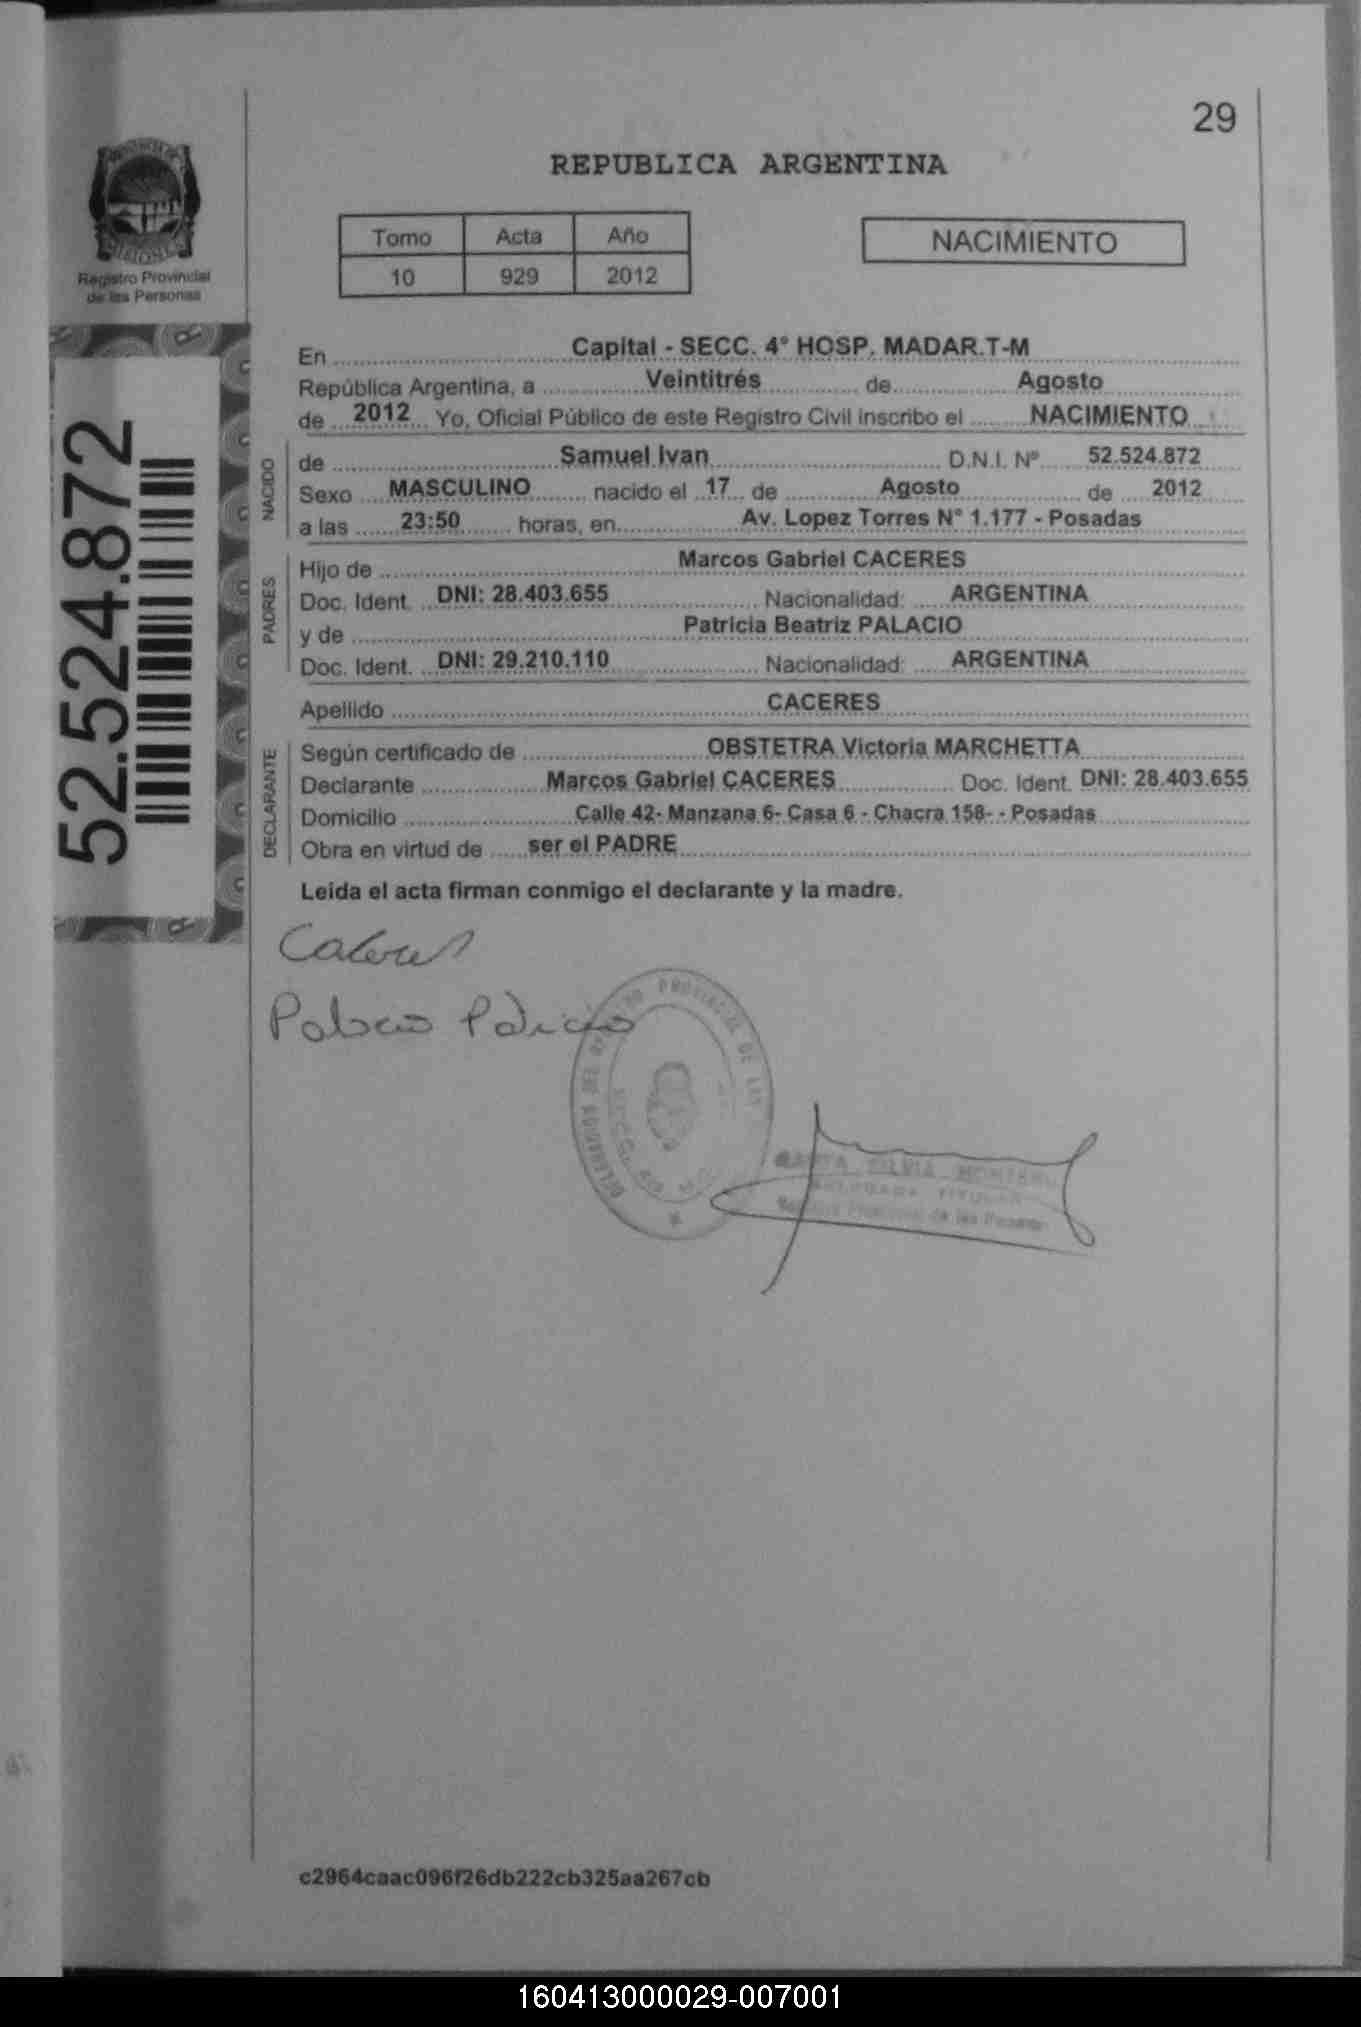 29
REPUBLICA ARGENTINA
Registro Provincial
de las Personas
Tomo Acta Año
10 929 2012
NACIMIENTO
52.524.872
En Capital - SECC. 4° HOSP. MADAR.T-M
República Argentina, a Veintitrés de Agosto
de 2012 Yo, Oficial Público de este Registro Civil inscribo el NACIMIENTO
NACIDO
de Samuel Ivan D.N.I. Nº 52.524.872
Sexo MASCULINO nacido el 17 de Agosto de 2012
a las 23:50 horas, en Av. Lopez Torres N° 1.177 - Posadas
PADRES
Hijo de Marcos Gabriel CACERES
Doc. Ident. DNI: 28.403.655 Nacionalidad: ARGENTINA
y de Patricia Beatriz PALACIO
Doc. Ident. DNI: 29.210.110 Nacionalidad: ARGENTINA
Apellido CACERES
DECLARANTE
Según certificado de OBSTETRA Victoria MARCHETTA
Declarante Marcos Gabriel CACERES Doc. Ident. DNI: 28.403.655
Domicilio Calle 42- Manzana 6- Casa 6 - Chacra 158- - Posadas
Obra en virtud de ser el PADRE
Leida el acta firman conmigo el declarante y la madre.
Caceres
Palacio Patricia
PROVINCIAL DE
SILVIA
TITULAR
de las Personas
c2964caac096f26db222cb325aa267cb
160413000029-007001